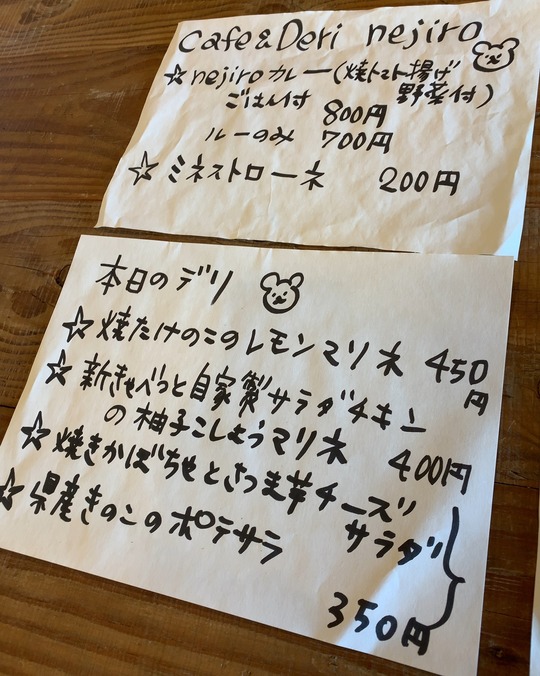 Cafe&Deri nejiro
☆nejiroカレー(焼トマト揚げ
野菜付)
ごはん付 800円
ルーのみ 700円
☆ミネストローネ 200円
本日のデリ
☆焼たけのこのレモンマリネ 450
円
☆新きゃべつと自家製サラダチキン
の柚子こしょうマリネ 400円
☆焼きかぼちゃとさつま芋チーズ
サラダ
☆県産きのこのポテサラ
350円